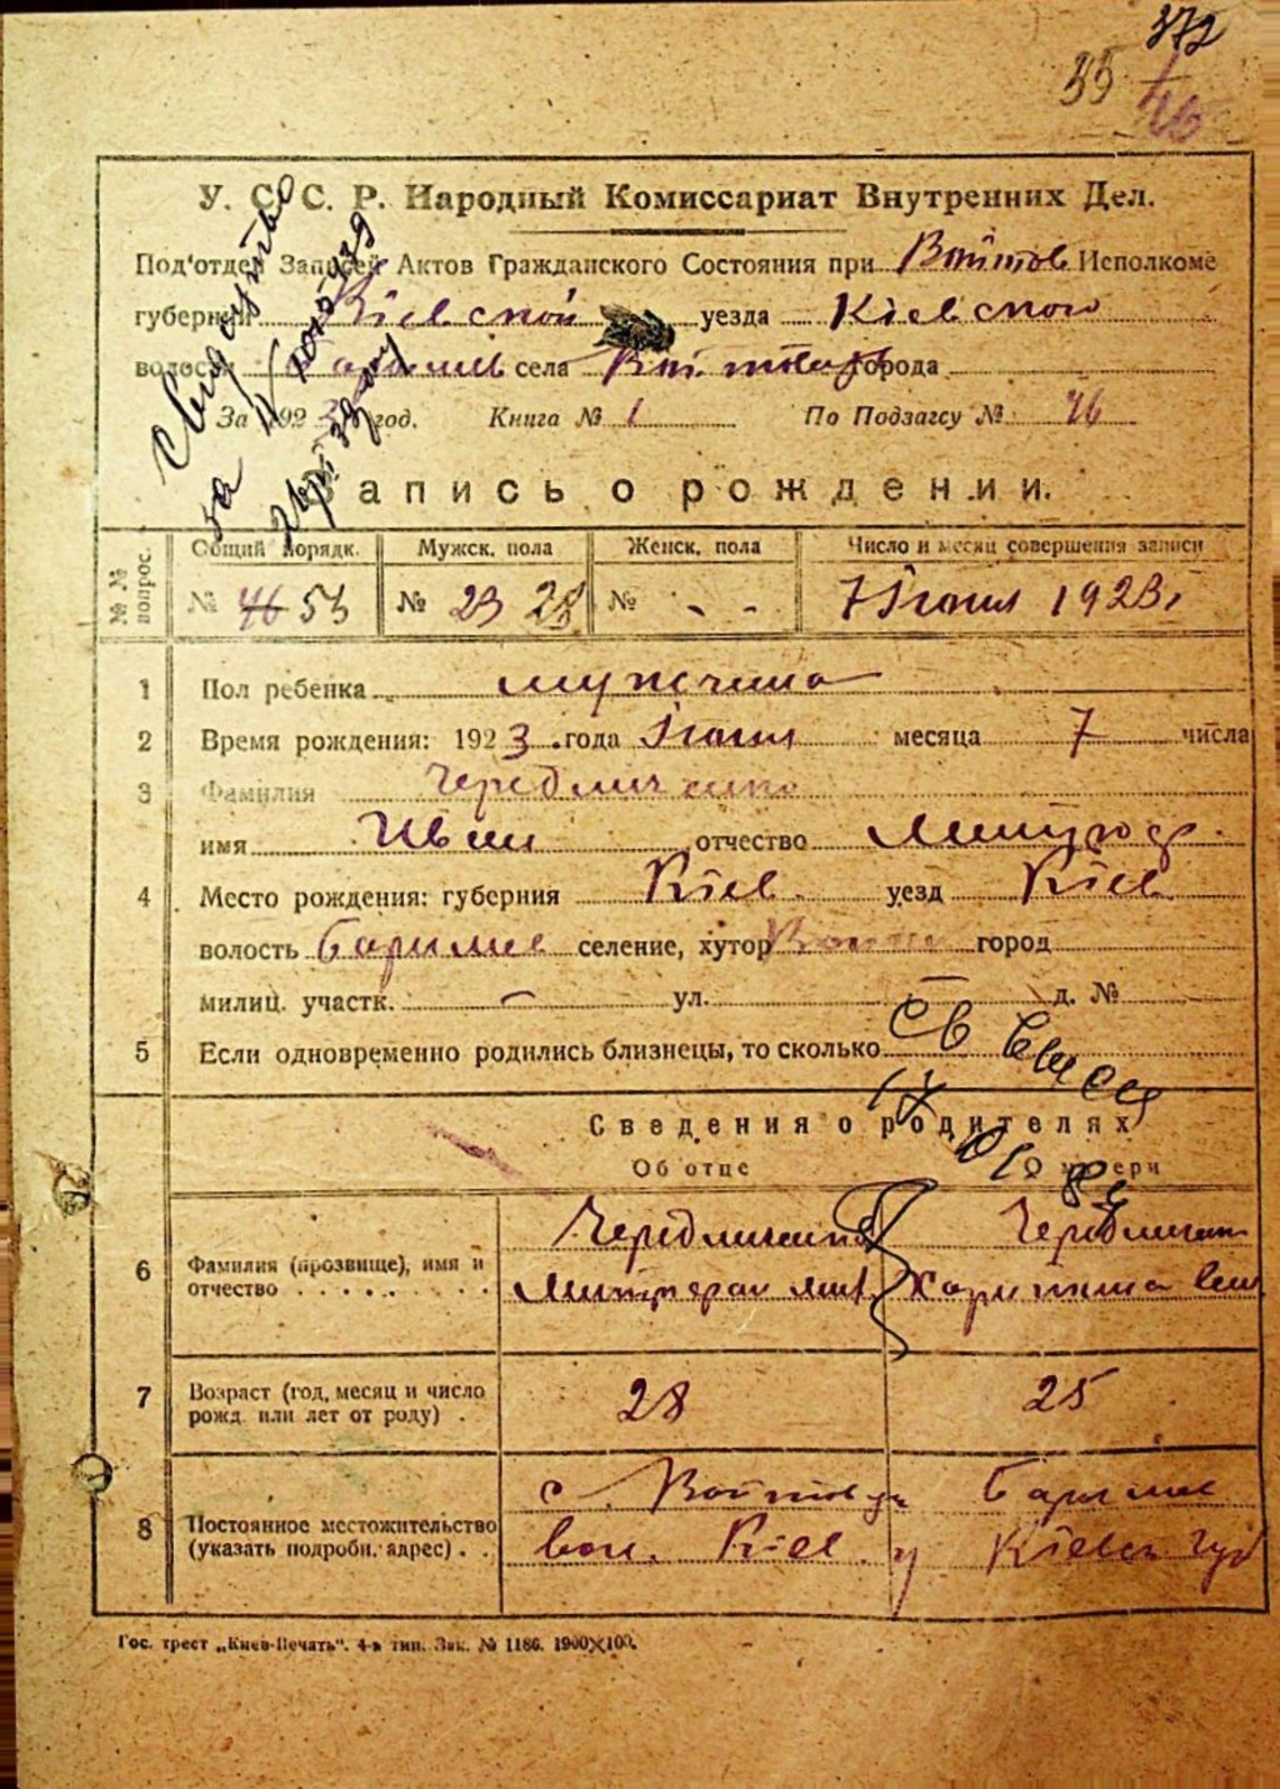 372
35
46
У. С. С. Р. Народный Комиссариат Внутренних Дел.
Под'отдел Записей Актов Гражданского Состояния при Войтов Исполкоме
губернии Кіевской уезда Кіевского
волости села города
За 1923 год. Книга № 1 По Подзагсу № 46
Запись о рождении.
№ № вопрос. Общий порядк. Мужск. пола Женск. пола Число и месяц совершения записи
№ 46 53 № 23 28 № - - 7 Іюня 1923
1 Пол ребенка мужчина
2 Время рождения: 1923 года Іюня месяца 7 числа
3 Фамилия Чередниченко
имя Иван отчество
4 Место рождения: губерния Кіев. уезд Кіев
волость Барышев селение, хутор город
милиц. участк. — ул. — д. №
5 Если одновременно родились близнецы, то сколько
Сведения о родителях
Об отце О матери
6 Фамилия (прозвище), имя и отчество Чередниченко Чередничен
7 Возраст (год, месяц и число рожд. или лет от роду) 28 25
8 Постоянное местожительство (указать подробн. адрес) с. Барышев
вол. Кіев. у Кіевск губ
Гос. трест „Киев-Печать“. 4-я тип. Зак. № 1186. 1900×100.